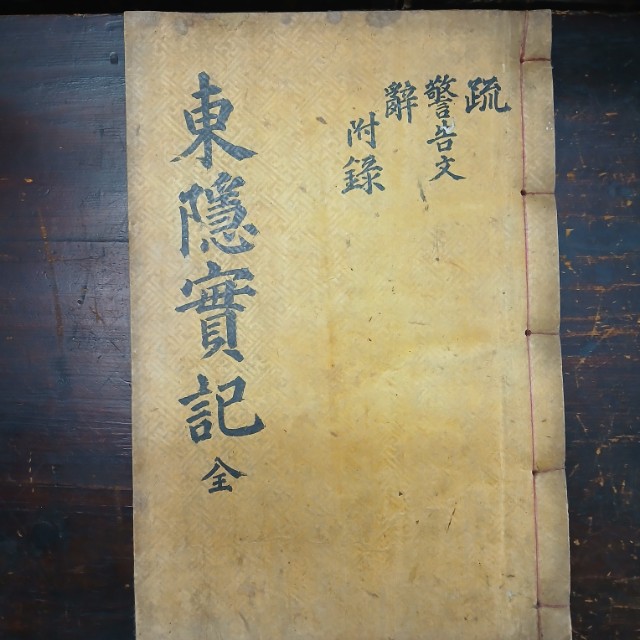 疏
警告文
辭
附錄
東隱實記 全